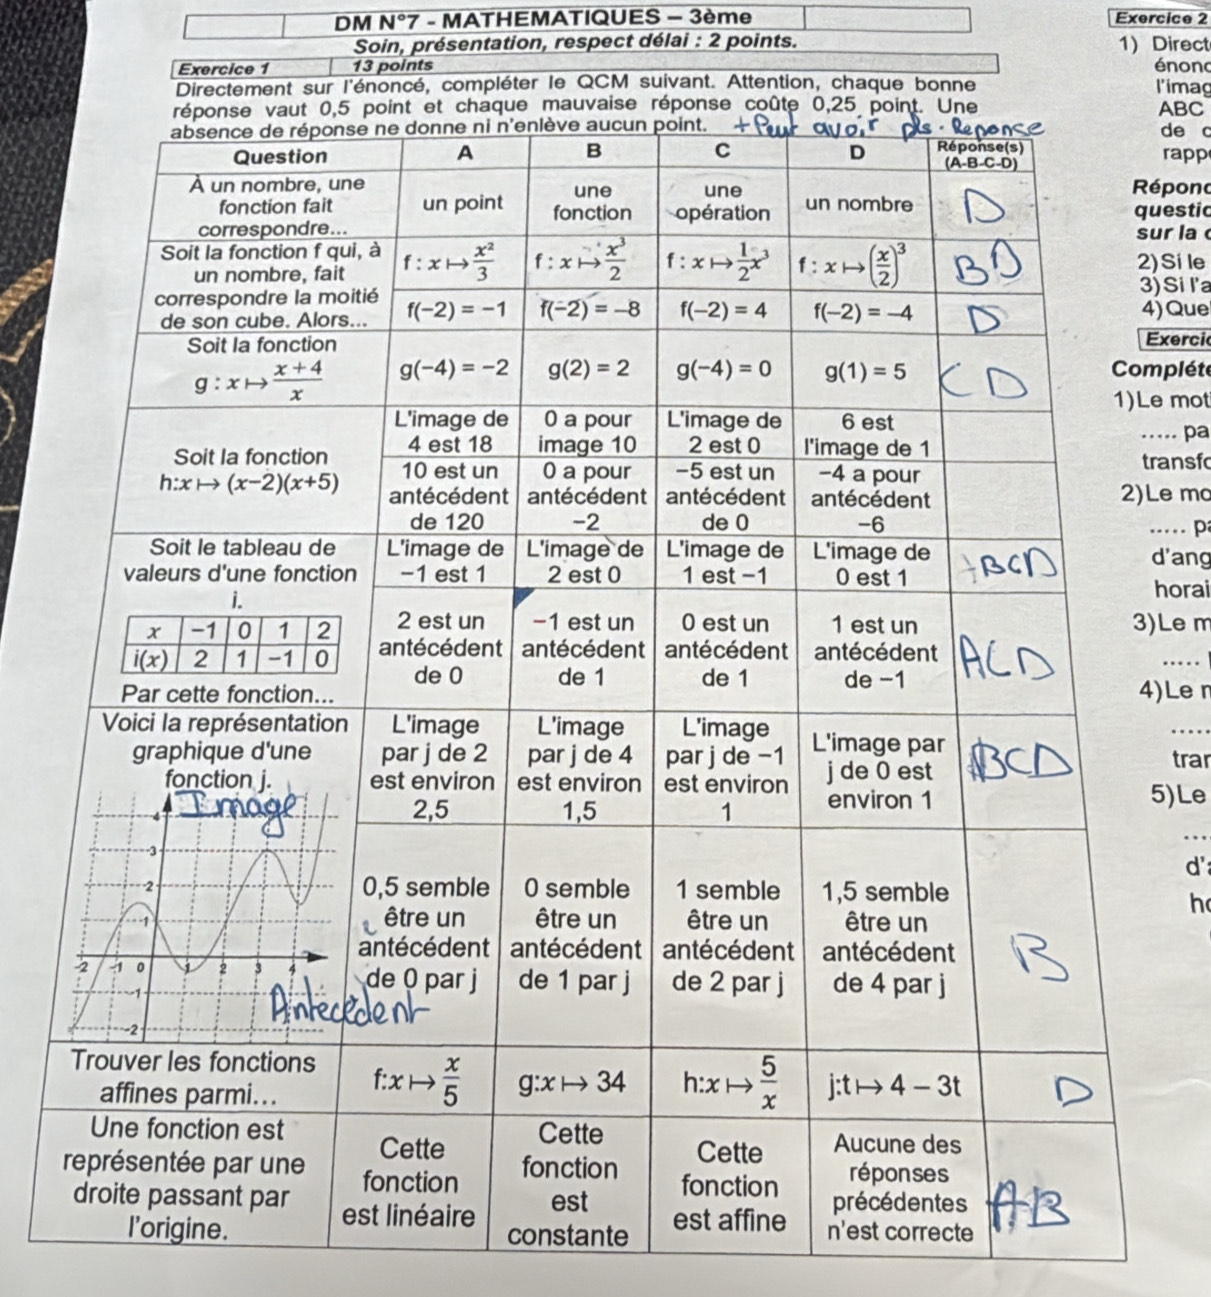 DM N°7 - MATHEMATIQUES – 3ème
Soin, présentation, respect délai : 2 points.
Exercice 1 13 points
Directement sur l'énoncé, compléter le QCM suivant. Attention, chaque bonne
réponse vaut 0,5 point et chaque mauvaise réponse coûte 0,25 point. Une
absence de réponse ne donne ni n'enlève aucun point. + Peut avoir pls. Reponse
Question A B C D Réponse(s) (A-B-C-D)
À un nombre, une
fonction fait
correspondre...
un point
une
fonction
une
opération
un nombre
D
Soit la fonction f qui, à
un nombre, fait
correspondre la moitié
de son cube. Alors...
f : x ↦ x²/3
f : x ↦ x³/2
f : x ↦ 1/2 x³
f : x ↦ (x/2)³
BD
f(−2) = −1
f(−2) = −8
f(−2) = 4
f(−2) = −4
D
Soit la fonction
g : x ↦ (x + 4)/x
g(−4) = −2
g(2) = 2
g(−4) = 0
g(1) = 5
CD
Soit la fonction
h:x ↦ (x−2)(x+5)
L'image de
4 est 18
0 a pour
image 10
L'image de
2 est 0
6 est
l'image de 1
10 est un
antécédent
de 120
0 a pour
antécédent
−2
−5 est un
antécédent
de 0
−4 a pour
antécédent
−6
Soit le tableau de
valeurs d'une fonction
i.
x −1 0 1 2
i(x) 2 1 −1 0
Par cette fonction...
L'image de
−1 est 1
L'image de
2 est 0
L'image de
1 est −1
L'image de
0 est 1
BCD
2 est un
antécédent
de 0
−1 est un
antécédent
de 1
0 est un
antécédent
de 1
1 est un
antécédent
de −1
ACD
Voici la représentation
graphique d'une
fonction j.
Image
4
3
2
1
-2 -1 0 1 2 3 4
-1
-2
Antecédent
L'image
par j de 2
est environ
2,5
L'image
par j de 4
est environ
1,5
L'image
par j de −1
est environ
1
L'image par
j de 0 est
environ 1
BCD
0,5 semble
être un
antécédent
de 0 par j
0 semble
être un
antécédent
de 1 par j
1 semble
être un
antécédent
de 2 par j
1,5 semble
être un
antécédent
de 4 par j
B
Trouver les fonctions
affines parmi...
f:x ↦ x/5
g:x ↦ 34
h:x ↦ 5/x
j:t ↦ 4 − 3t
D
Une fonction est
représentée par une
droite passant par
l'origine.
Cette
fonction
est linéaire
Cette
fonction
est
constante
Cette
fonction
est affine
Aucune des
réponses
précédentes
n'est correcte
AB
Exercice 2
1) Direct
énonc
l'imag
ABC
de c
rapp
Répond
questio
sur la c
2) Si le
3) Si l'a
4) Que
Exercic
Compléte
1) Le mot
..... pa
transfo
2) Le mo
..... pa
d'ang
horai
3) Le m
.....
4) Le n
....
tran
5) Le
...
d'a
ho